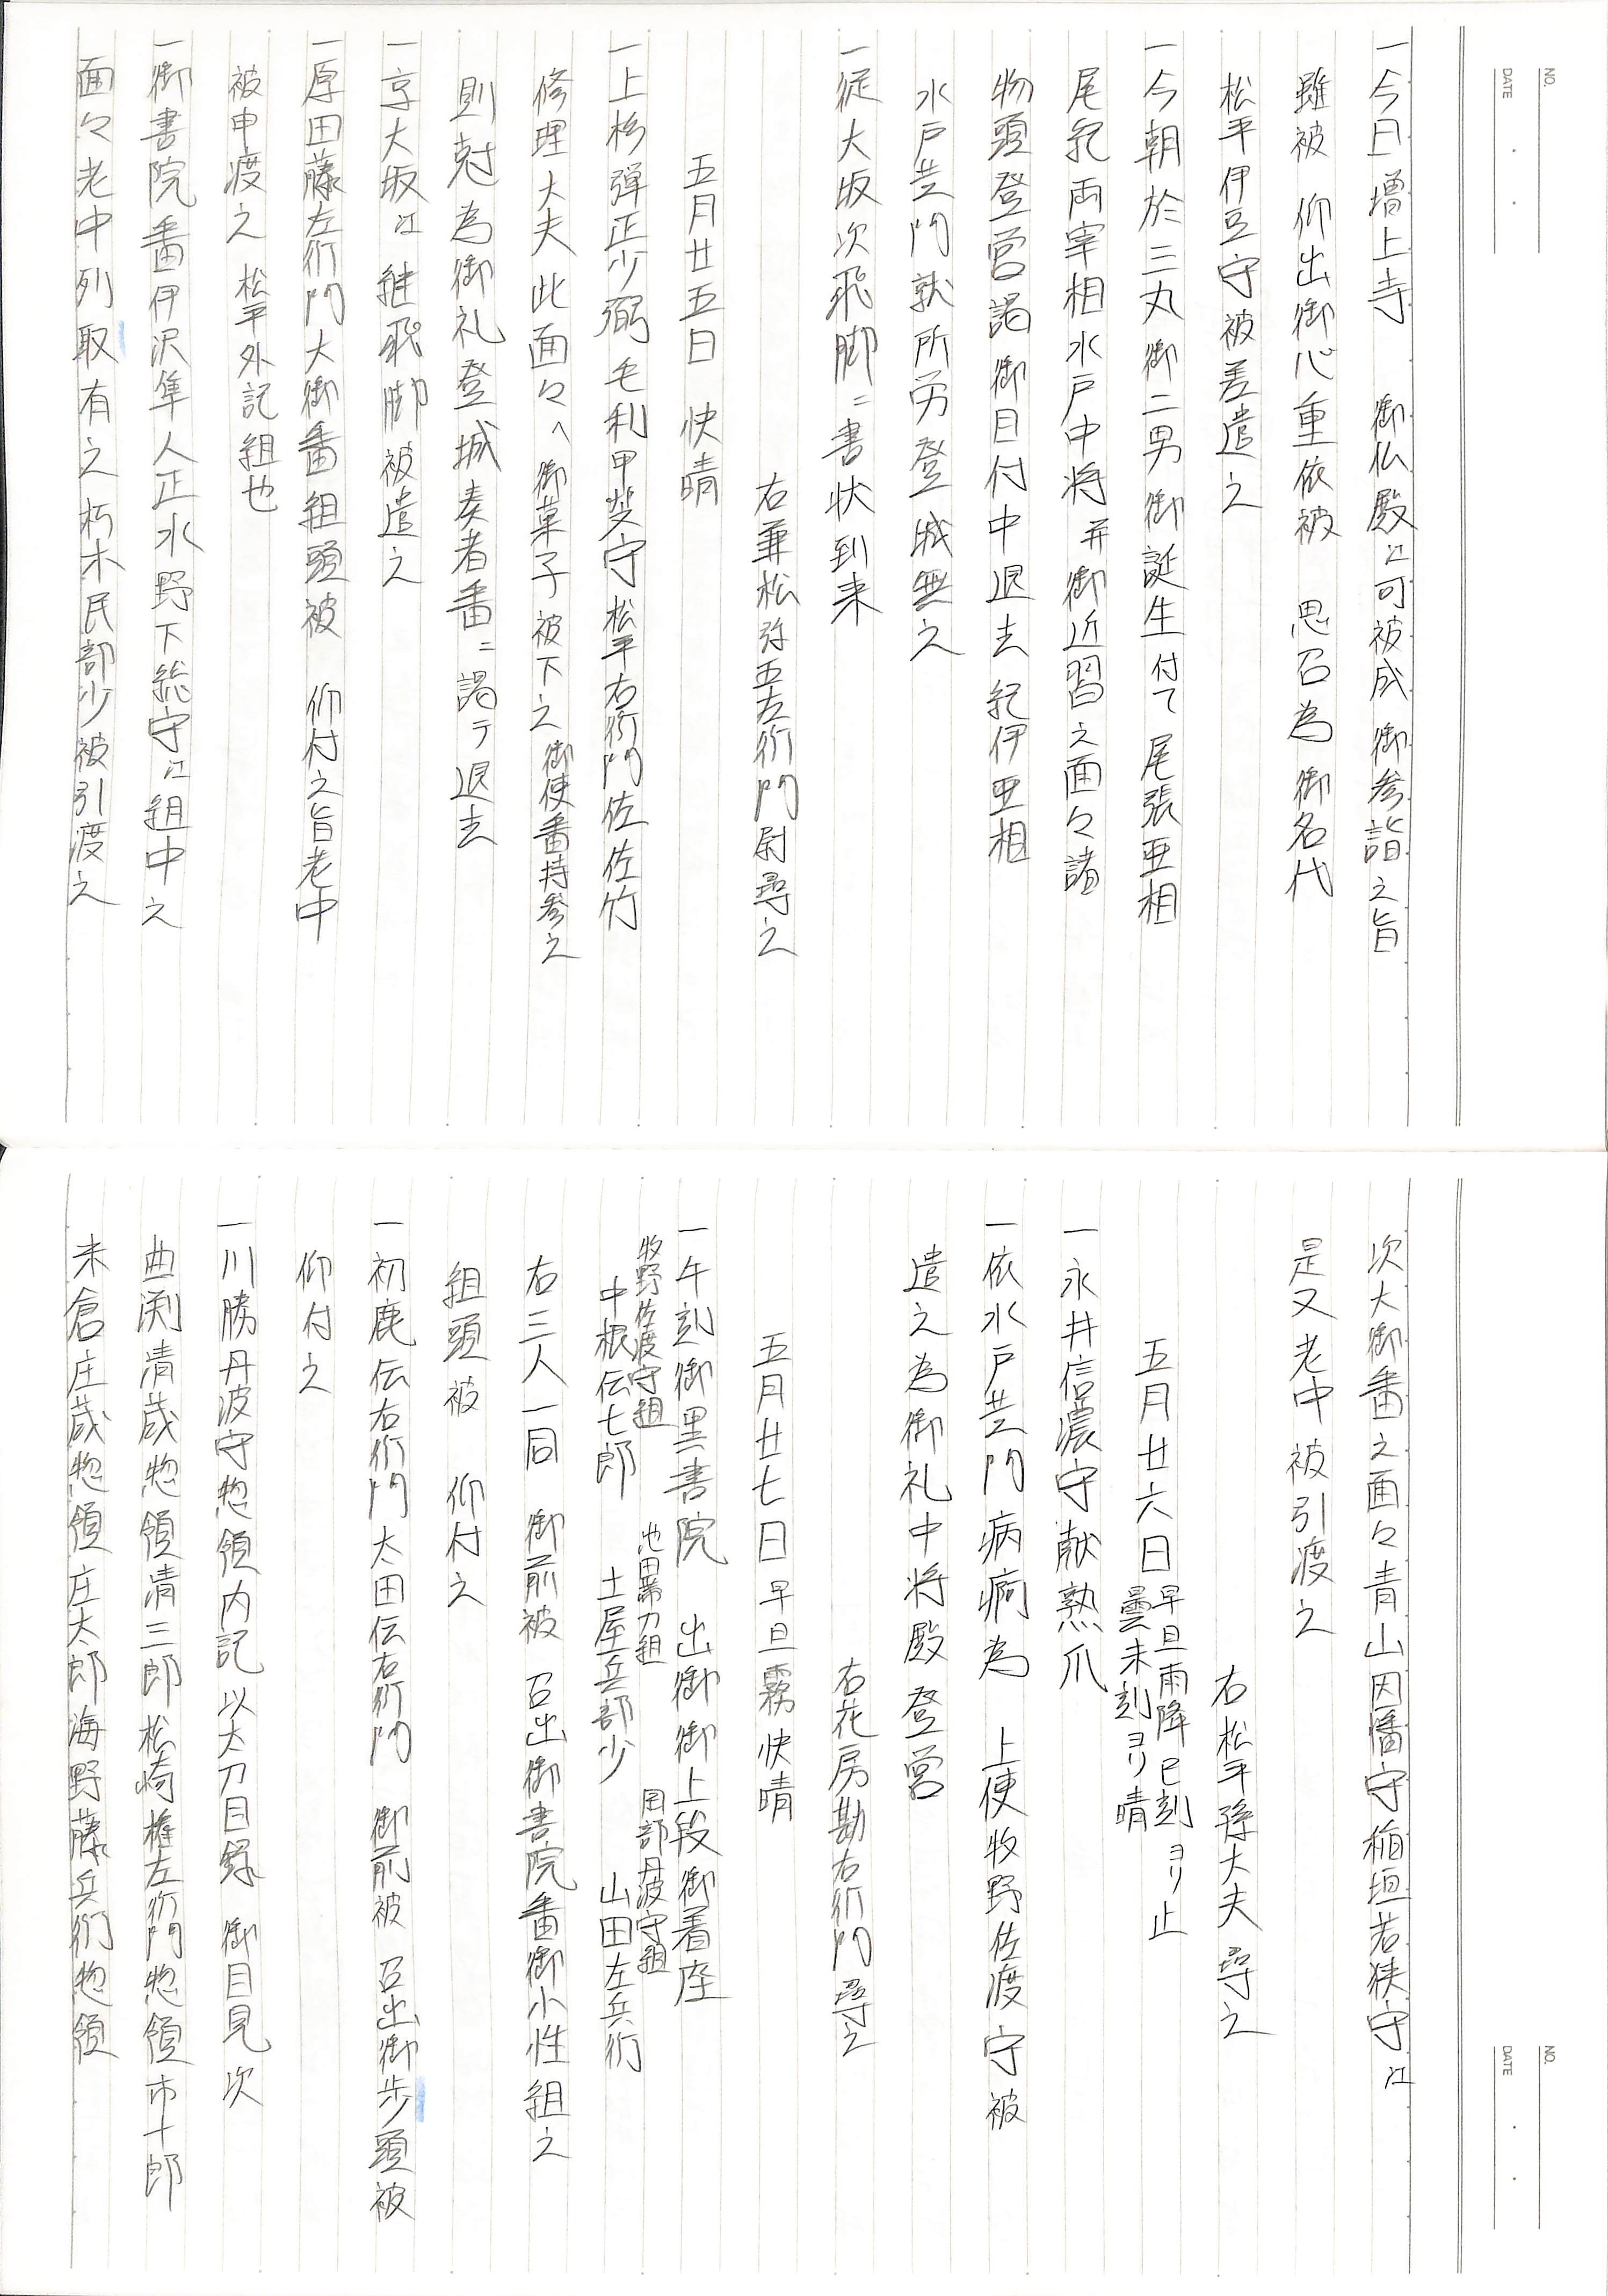 NO.
DATE
一今日増上寺 御仏殿江可被成 御参詣之旨
雖被 仰出御心重依被 思召為 御名代
松平伊豆守被差遣之
一今朝於三丸御二男御誕生付て尾張亜相
尾紀両宰相水戸中将并御近習之面々諸
物頭登営謁御目付中退去 紀伊亜相
水戸黄門就所労登城無之
一従大坂次飛脚ニ書状到来
右兼松弥五左衛門尉尋之
五月廿五日 快晴
一上杉弾正少弼毛利甲斐守松平右衛門佐佐竹
修理大夫此面々へ御菓子被下之御使番持参之
則尅為御礼登城奏者番ニ謁テ退去
一京大坂江継飛脚被遣之
一原田藤左衛門大御番組頭被 仰付之旨老中
被申渡之 松平外記組也
一御書院番伊沢隼人正水野下総守江組中之
面々老中列取有之朽木民部少被引渡之
NO.
DATE
次大御番之面々青山因幡守稲垣若狭守江
是又老中被引渡之
右松平孫大夫尋之
五月廿六日 早旦雨降巳刻ヨリ止
曇未刻ヨリ晴
一永井信濃守献熟瓜
一依水戸黄門病痾為 上使牧野佐渡守被
遣之為御礼中将殿登営
右花房勘右衛門尋之
五月廿七日 早旦霧快晴
一午刻御黒書院 出御御上段御着座
牧野佐渡守組 池田帯刀組 岡部丹波守組
中根伝七郎 土屋兵部少 山田左兵衛
右三人一同 御前被 召出御書院番御小性組之
組頭被 仰付之
一初鹿伝右衛門太田伝右衛門 御前被 召出御歩頭被
仰付之
一川勝丹波守惣領内記以太刀目録 御目見次
曲渕清歳惣領清三郎松崎権左衛門惣領市十郎
米倉庄歳惣領庄太郎海野藤兵衛惣領